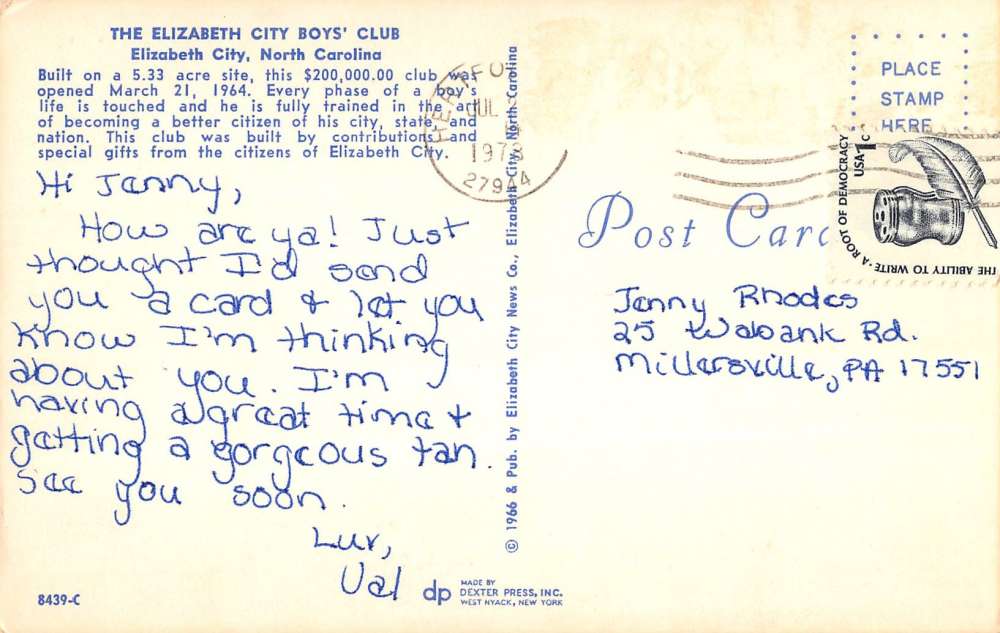 THE ELIZABETH CITY BOYS' CLUB
Elizabeth City, North Carolina
Built on a 5.33 acre site, this $200,000.00 club was
opened March 21, 1964. Every phase of a boy's
life is touched and he is fully trained in the art
of becoming a better citizen of his city, state and
nation. This club was built by contributions and
special gifts from the citizens of Elizabeth City.
Hi Jenny,
How are ya! Just
thought I'd send
you a card & let you
know I'm thinking
about you. I'm
having a great time &
getting a gorgeous tan.
See you soon.
Luv,
Val
8439-C
dp
MADE BY
DEXTER PRESS, INC.
WEST NYACK, NEW YORK
© 1966 & Pub. by Elizabeth City News Co., Elizabeth City, North Carolina
JUL
1978
27944
PLACE
STAMP
HERE
USA 1c
THE ABILITY TO WRITE • A ROOT OF DEMOCRACY
Post Card
Jenny Rhodes
25 Wabank Rd.
Millersville, PA 17551